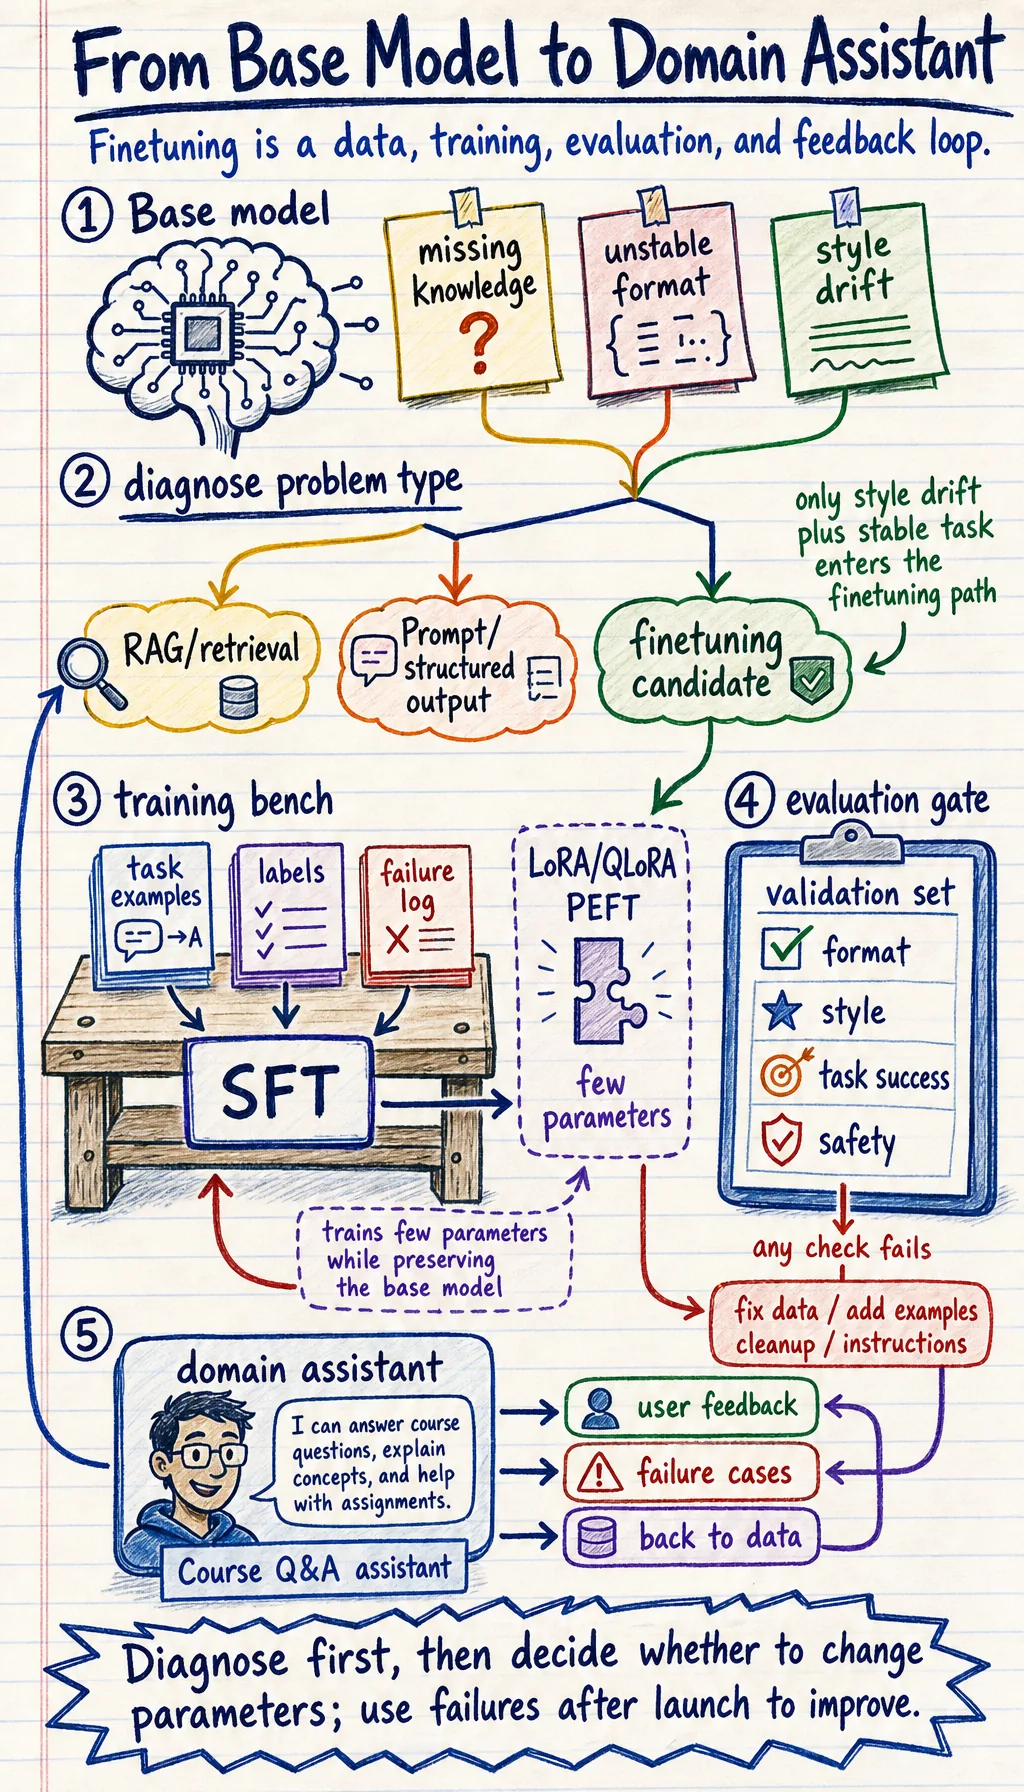 From Base Model to Domain Assistant
Finetuning is a data, training, evaluation, and feedback loop.
1 Base model
missing
knowledge
?
unstable
format
style
drift
2 diagnose problem type
only style drift
plus stable task
enters the
finetuning path
RAG/retrieval
Prompt/
structured
output
finetuning
candidate
3 training bench
task
examples
→A
labels
failure
log
SFT
LoRA/QLoRA
PEFT
few
parameters
trains few parameters
while preserving
the base model
4 evaluation gate
validation set
format
style
task success
safety
any check fails
fix data / add examples
cleanup / instructions
5
domain assistant
I can answer course
questions, explain
concepts, and help
with assignments.
Course Q&A assistant
user feedback
failure cases
back to data
Diagnose first, then decide whether to change
parameters; use failures after launch to improve.